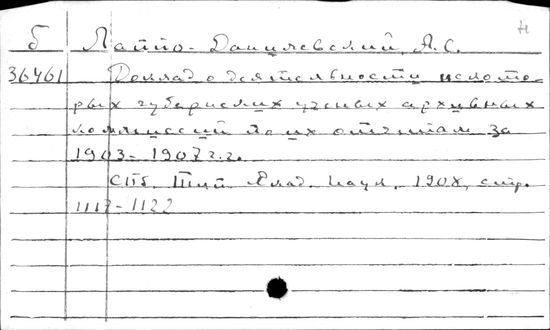 Б Лаппо-Данилевский, А.С. Н
36461 Доклад о деятельности некото-
рых губернских ученых архивных
комиссий по их отчетам за
1903-1907 г.г.
СПб. Тип. Акад. Наук, 1908, стр.
1117-1122